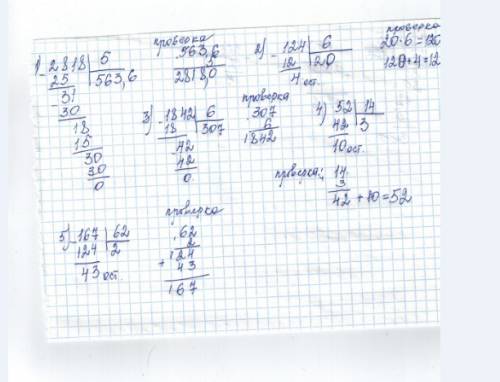 1) -2818 | 5
25 | 563,6
-31
30
18
15
30
30
0
проверка
563,6
5
2818,0
2) -124 | 6
12 | 20
4 ост.
проверка
20·6=120
120+4=12
3) -1842 | 6
18 | 307
42
42
0
проверка
307
6
1842
4) 52 | 14
42 | 3
10 ост.
проверка:
14
3
42 +10=52
5) -167 | 62
124 | 2
43 ост.
проверка
62
2
124
+ 43
167